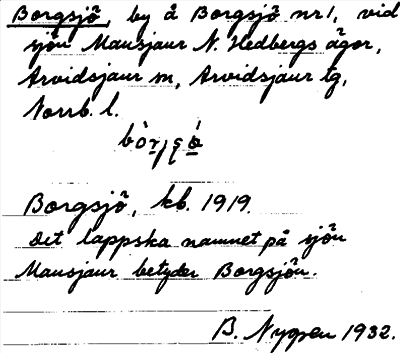 Borgsjö, by å Borgsjö nr 1, vid
sjön Mausjaur N. Hedbergs ägor,
Arvidsjaur sn, Arvidsjaur tg,
Norrb. l.
Borgsjö, kb. 1919.
Det lappska namnet på sjön
Mausjaur betyder Borgsjön.
B. Nygren 1932.